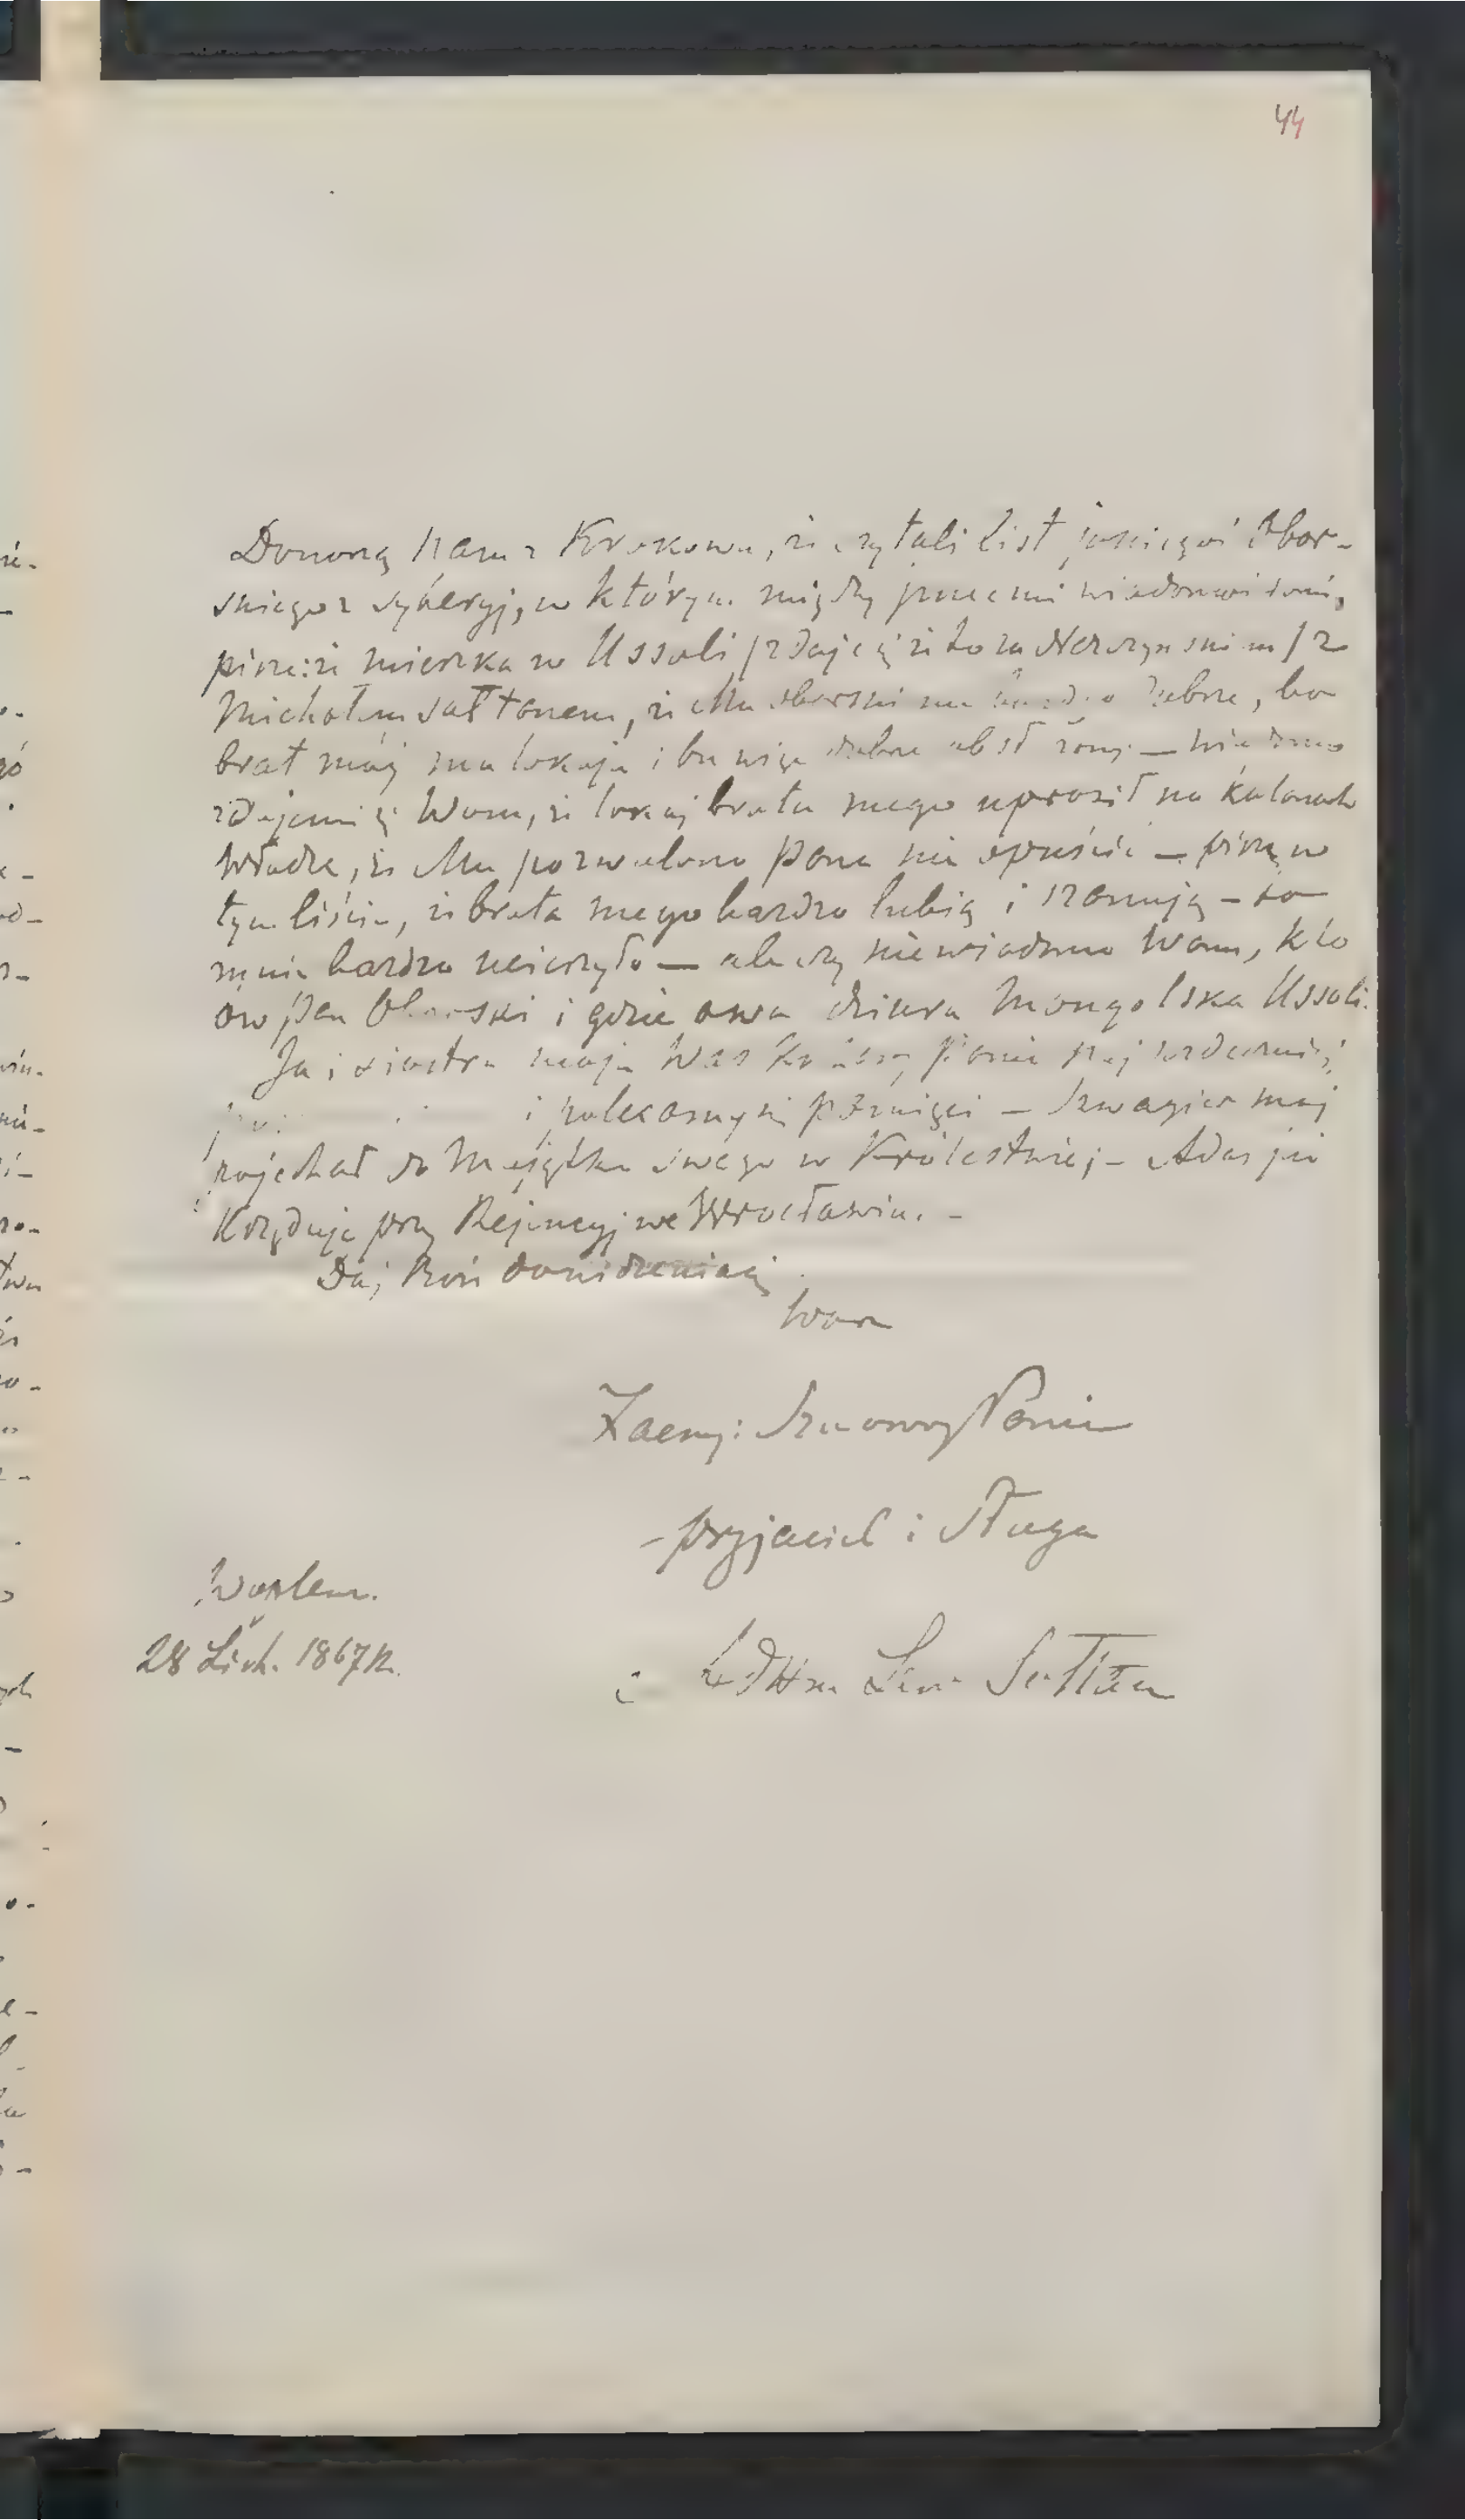 44
Donoszą Nam z Krakowa, że czytali list jakiegoś Obor-
skiego z Syberyj, w którym między innemi wiadomościami,
pisze: że mieszka w Ussoli /zdaje się że to za Nerczynskiem/ z
Michałem Sałtanem, że Mu Oborski ma bardzo dobre, bo
brat mój ma lokaja i bywa dobre obsł żony — wiadomo
zdaje mi się Wam, że lokaj brata mego uprosił na kolanach
Władze, że Mu pozwolono Pana nie opuścić — piszą w
tym liście, że brata mego bardzo lubią i szanują — to
mnie bardzo ucieszyło — ale czy nie wiadomo Wam, kto
ów Pan Oborski i gdzie owa dziura Mongolska Ussoli.
Ja i siostra moja Was Kochany Panie najserdeczniej
i polecamy się pamięci — Szwagier mój
pojechał do Majątku swego w Królestwie; — Adaś już
Urzęduje przy Rejencyj we Wrocławiu. —
Daj Boże dowidzenia się
Wasz
Zacny i Szanowny Panie
przyjaciel i Sługa
28 1867 r.